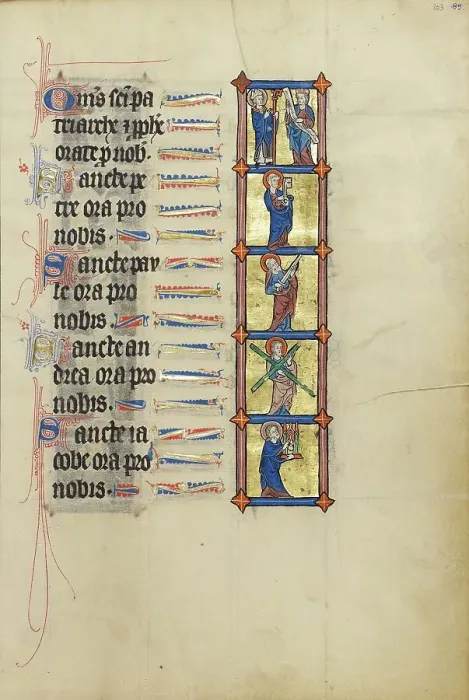 103 89
Om̄s sc̄i pa
triarche ⁊ ꝓph̄e
orate ꝓ nob.
Sancte pe
tre ora pro
nobis.
Sancte pau
le ora pro
nobis.
Sancte an
drea ora pro
nobis.
Sancte ia
cobe ora pro
nobis.